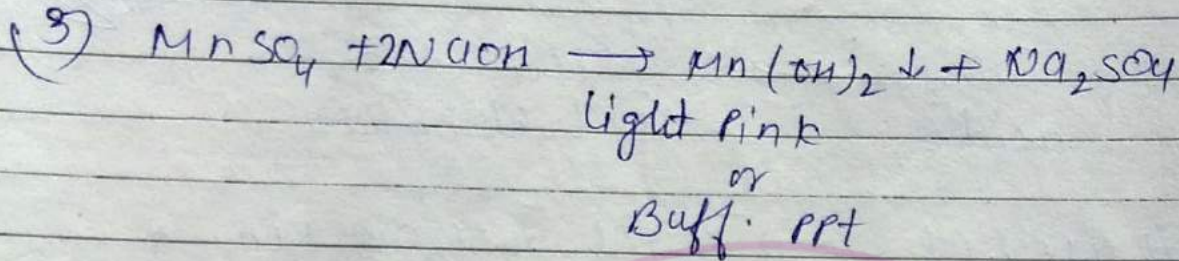 (3) MnSO₄ + 2NaOH ⟶ Mn(OH)₂ ↓ + Na₂SO₄
light pink
or
Buff. ppt